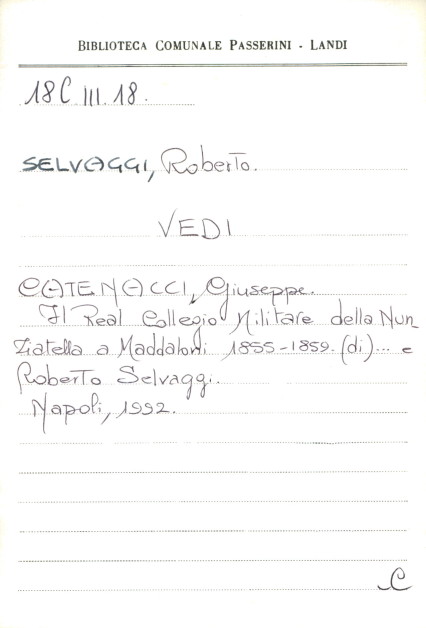 BIBLIOTECA COMUNALE PASSERINI - LANDI
18C III. 18.
SELVAGGI, Roberto.
VEDI
CATENACCI, Giuseppe.
Il Real Collegio Militare della Nun
ziatella a Maddaloni 1855-1859. (di)... e
Roberto Selvaggi.
Napoli, 1992.
C